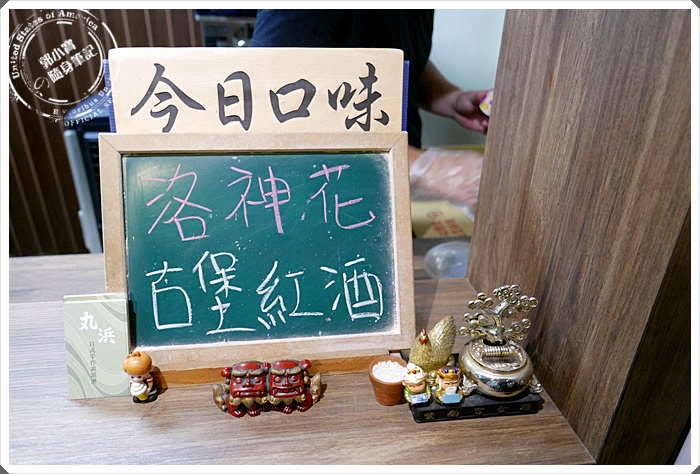 United States of America
郭小寶
の隨身筆記
OFFICIAL
今日口味
洛神花
古堡紅酒
丸浜